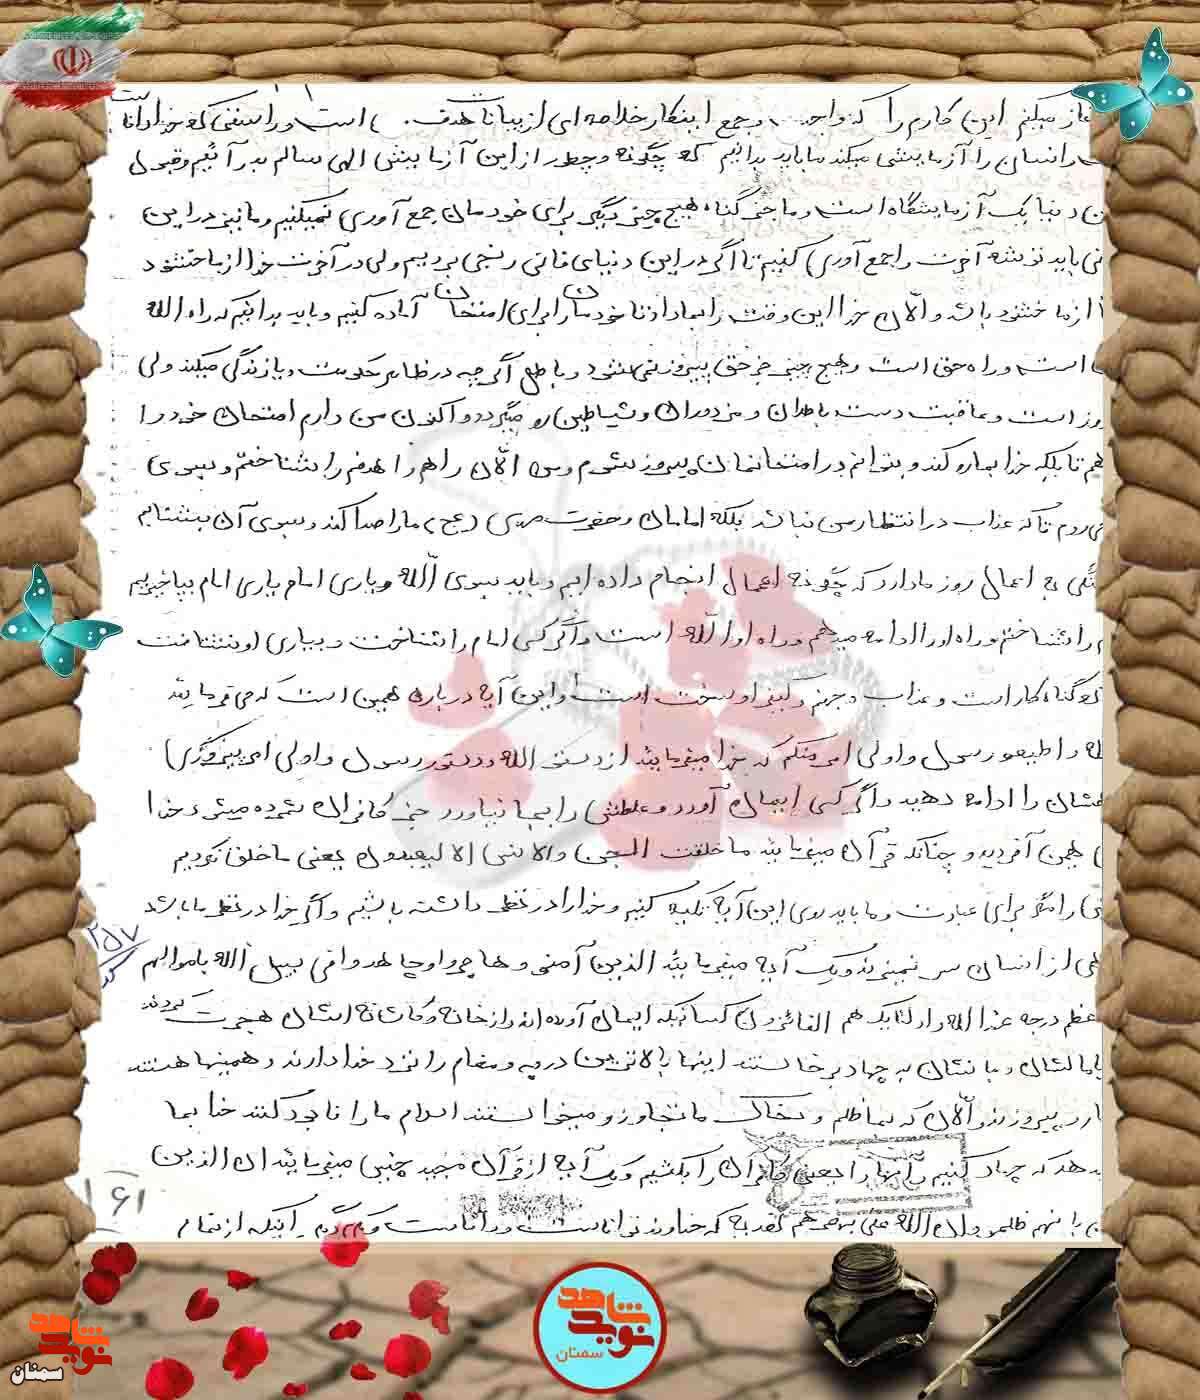 میکنم این کارم را که واجب و جمع اینکار خلاصه ای از بیانات هدف است و راستی که خدا دانا
انسان را آزمایش میکند ما باید بدانیم که چگونه و چطور از این آزمایش الهی سالم بدر آئیم و قبول
دنیا یک آزمایشگاه است و ما جز گناه هیچ چیز دیگر برای خودمان جمع آوری نمیکنیم و ما نیز در این
باید توشه آخرت را جمع آوری کنیم تا اگر در این دنیای فانی رنجی بردیم ولی در آخرت خدا از ما خشنود
از ما خشنود باشد و الان خدا این وقت را بما داد تا خودمان را برای امتحان آماده کنیم و باید بدانیم که راه الله
است و راه حق است و هیچ چیز جز حق پیروز نمی شود و باطل اگر چه در ظاهر حکومت و یا زندگی میکند ولی
است و عاقبت دست باطلان و مزدوران و شیاطین رو میگردد و اکنون من دارم امتحان خود را
تا بلکه خدا بما رو کند و بتوانم در امتحانمان پیروز بشوم و من الان راهم را هدفم را شناختم و بسوی
می روم تا که عذاب در انتظار من نباشد بلکه امامان و حضرت مهدی (عج) ما را صدا کند و بسوی آن بشتابم
به اعمال روز ما دارد که چگونه اعمال انجام داده ایم و باید بسوی الله و یاری امام یاری امام بپا خیزیم
را شناختم و راه او را ادامه میدهم و راه او الله است و اگر کسی امام را شناخت و بیاری او نشتافت
گناه کار است و عذاب و جهنم و کیفر او سخت است و این آیه درباره همین است که می فرماید
و اطیعو رسول و اولی امر منکم که خدا میفرمایند از دستور الله و دستور رسول و اولی امر پیروی
را ادامه دهید و اگر کسی ایمان آورد و عملش را بجا نیاورد جز کافران شمرده میشود خدا
همین آفرید و چنانکه قرآن میفرمایند ما خلقت الجن والانس الا لیعبدون یعنی ما خلق نکردیم
را مگر برای عبادت و ما باید روی این آیه تکیه کنیم و خدا را در نظر داشته باشیم و اگر خدا در نظر ما باشد
از انسان سر نمیزند و یک آیه میفرمایند الذین آمنو و هاجرو او جاهدو افی سبیل الله باموالهم
اعظم درجه عندالله و اولئک هم الفائزون کسانیکه ایمان آورده اند و از خانه و کاشانه اشان هجرت کردند
با مالشان و با جانشان به جهاد برخاستند اینها بالاترین درجه و مقام را نزد خدا دارند و همینها هستند
پیروزند و الان که بما ظلم و بخاک ما تجاوز و میخواستند اسلام ما را نابود کنند خدا بما
که جهاد کنیم و آنها را یعنی کافران را بکشیم و یک آیه از قرآن مجید چنین میفرمایند اذن الذین
بانهم ظلمو و ان الله علی نصرهم لقدیر که خداوند توانا است و داناست و اینکه از تمام
۲۵۷
۱۶۱
نوید شاهد
سمنان
نوید شاهد
سمنان